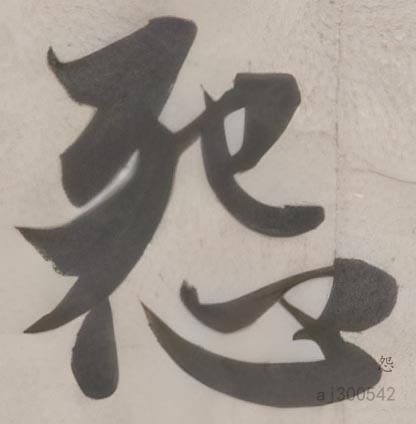 怨
怨
aj300542